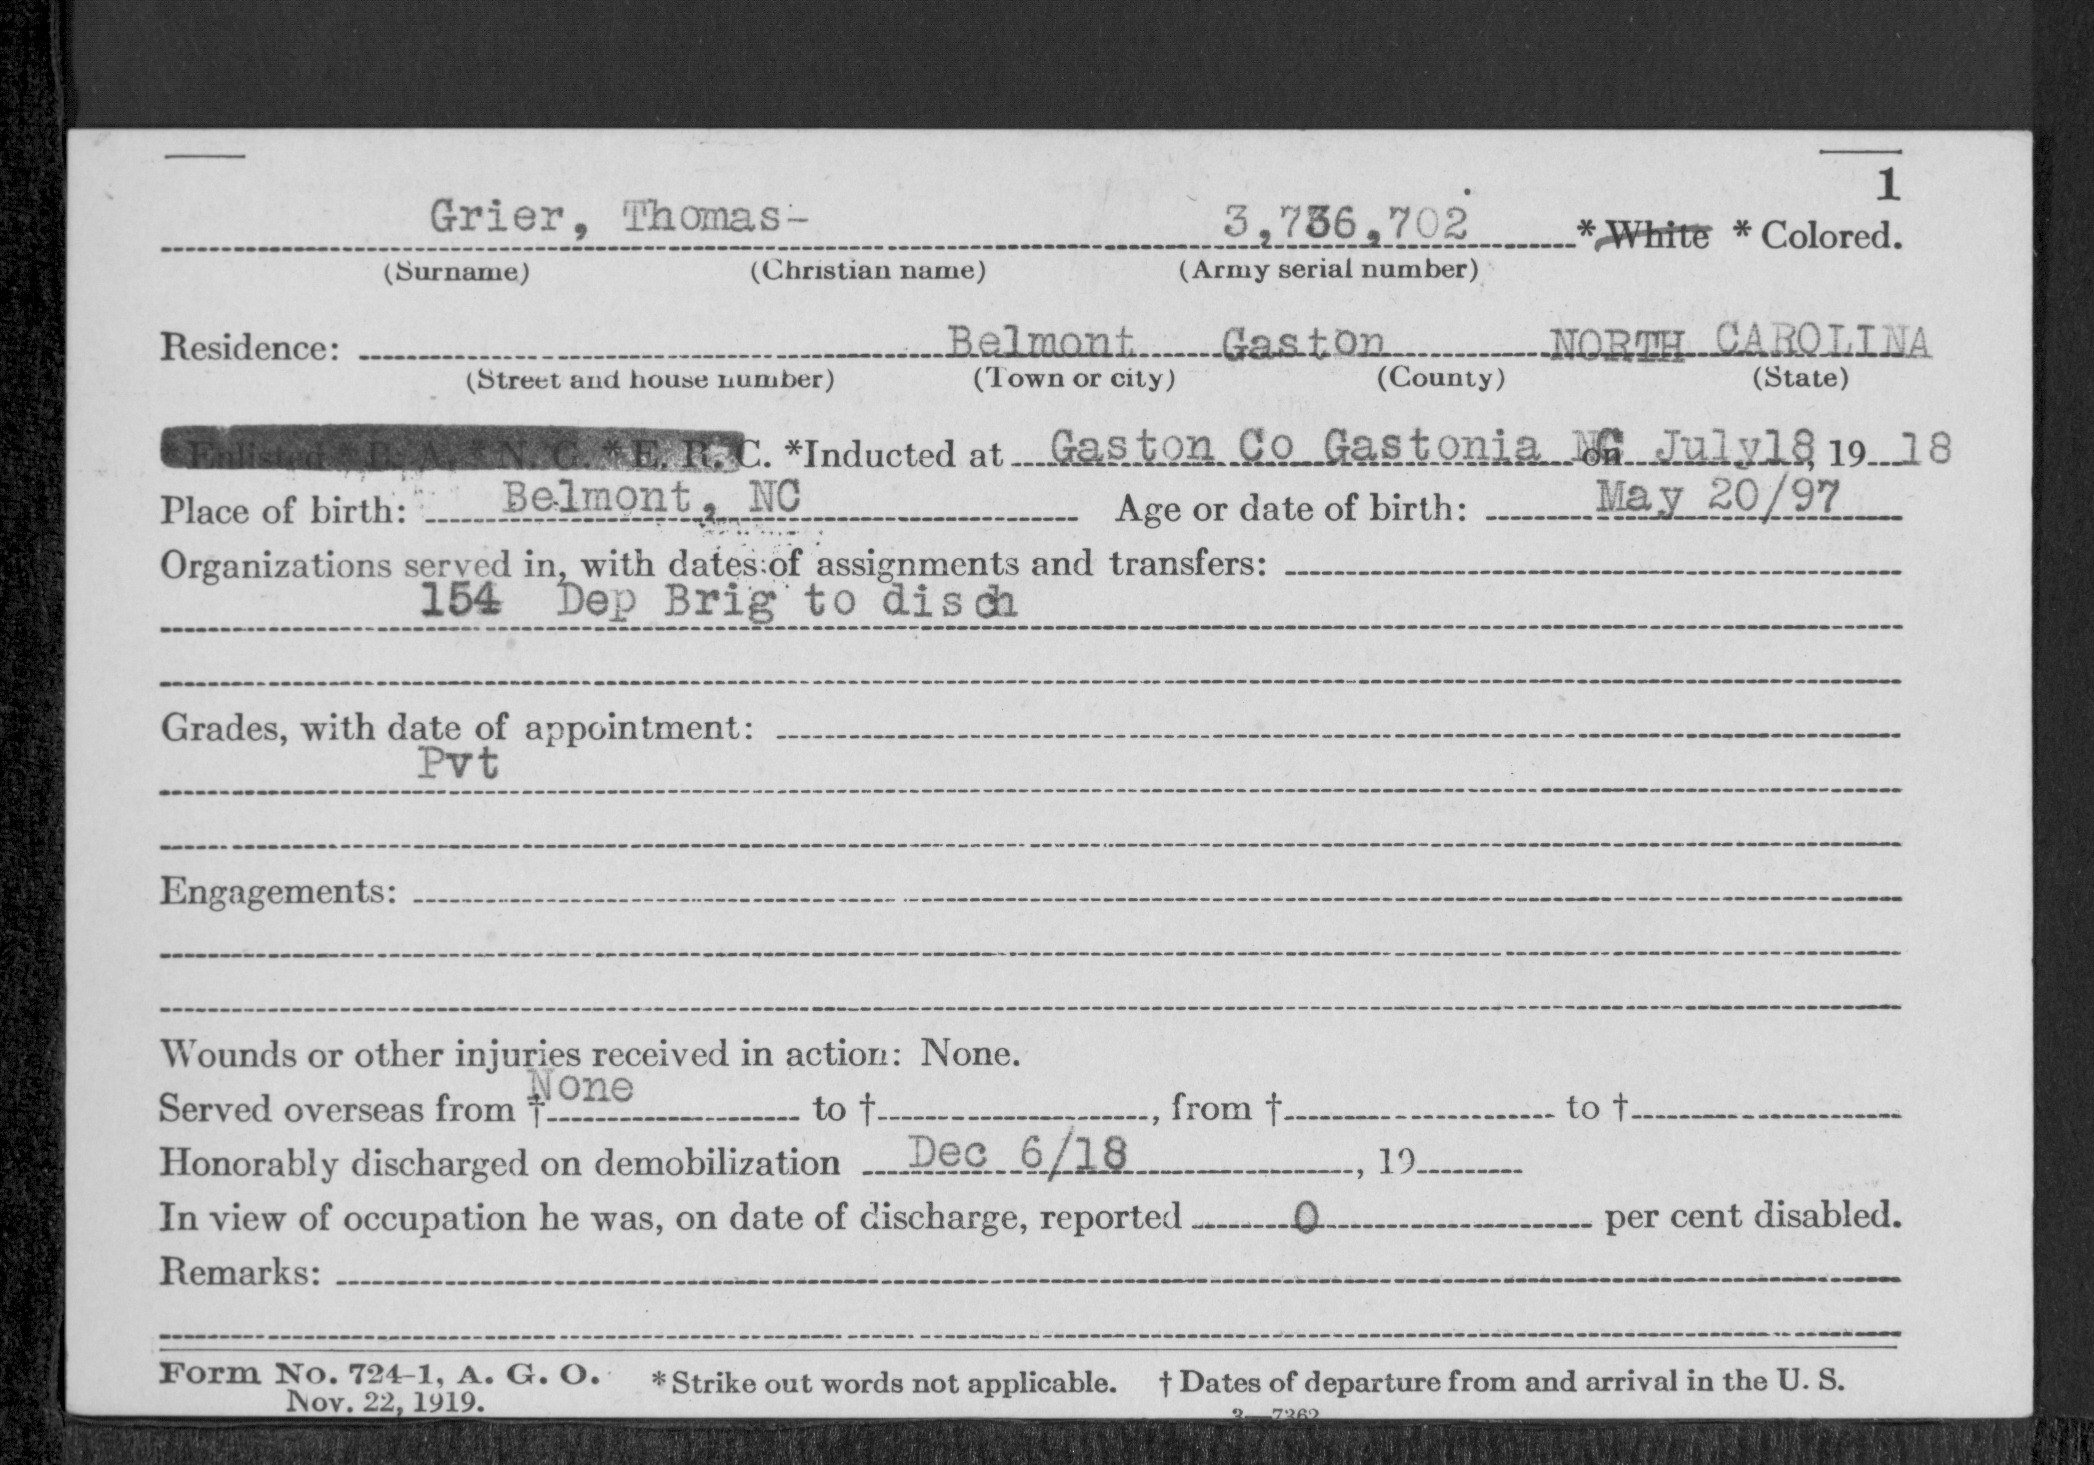 1
Grier, Thomas- 3,736,702 * White * Colored.
(Surname) (Christian name) (Army serial number)
Residence: Belmont Gaston NORTH CAROLINA
(Street and house number) (Town or city) (County) (State)
* Enlisted * R. A. * N. G. * E. R. C. *Inducted at Gaston Co Gastonia NC on July18, 19 18
Place of birth: Belmont, NC Age or date of birth: May 20/97
Organizations served in, with dates of assignments and transfers:
154 Dep Brig to disch
Grades, with date of appointment:
Pvt
Engagements:
Wounds or other injuries received in action: None.
Served overseas from † None to †, from † to †
Honorably discharged on demobilization Dec 6/18, 19
In view of occupation he was, on date of discharge, reported 0 per cent disabled.
Remarks:
Form No. 724-1, A. G. O. * Strike out words not applicable. † Dates of departure from and arrival in the U. S.
Nov. 22, 1919.
3—7362